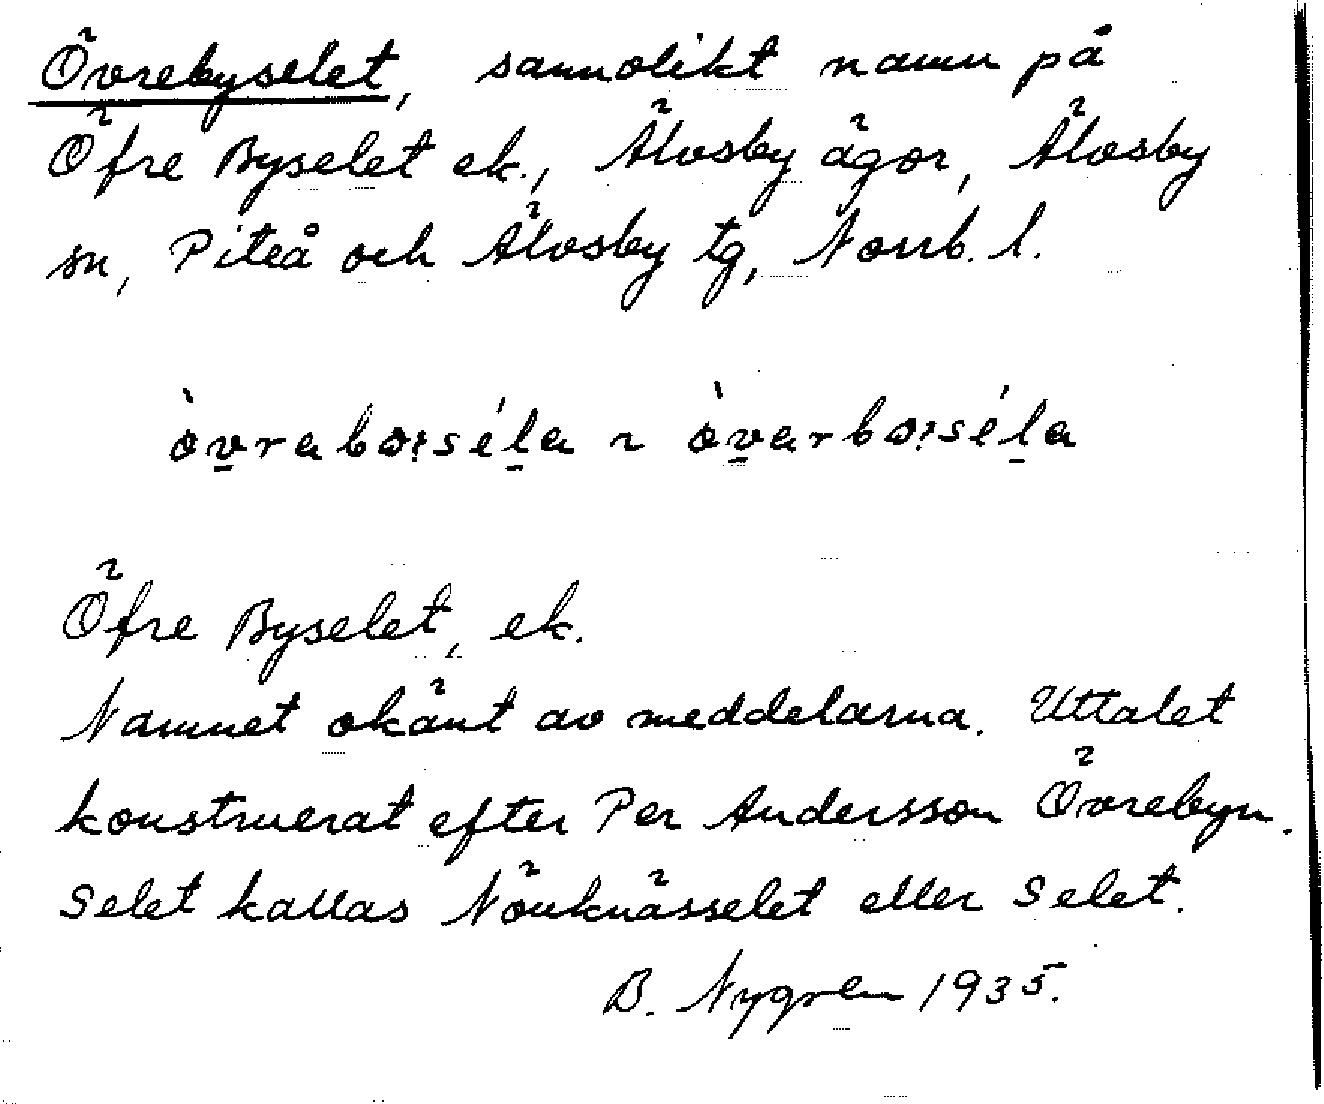 Övrebyselet, sannolikt namn på
Öfre Byselet ek., Älvsby ägor, Älvsby
sn, Piteå och Älvsby tg, Norrb. l.
Öfre Byselet, ek.
Namnet okänt av meddelarna. Uttalet
konstruerat efter Per Andersson Övrebyn.
Selet kallas Nönknässelet eller Selet.
B. Nygren 1935.